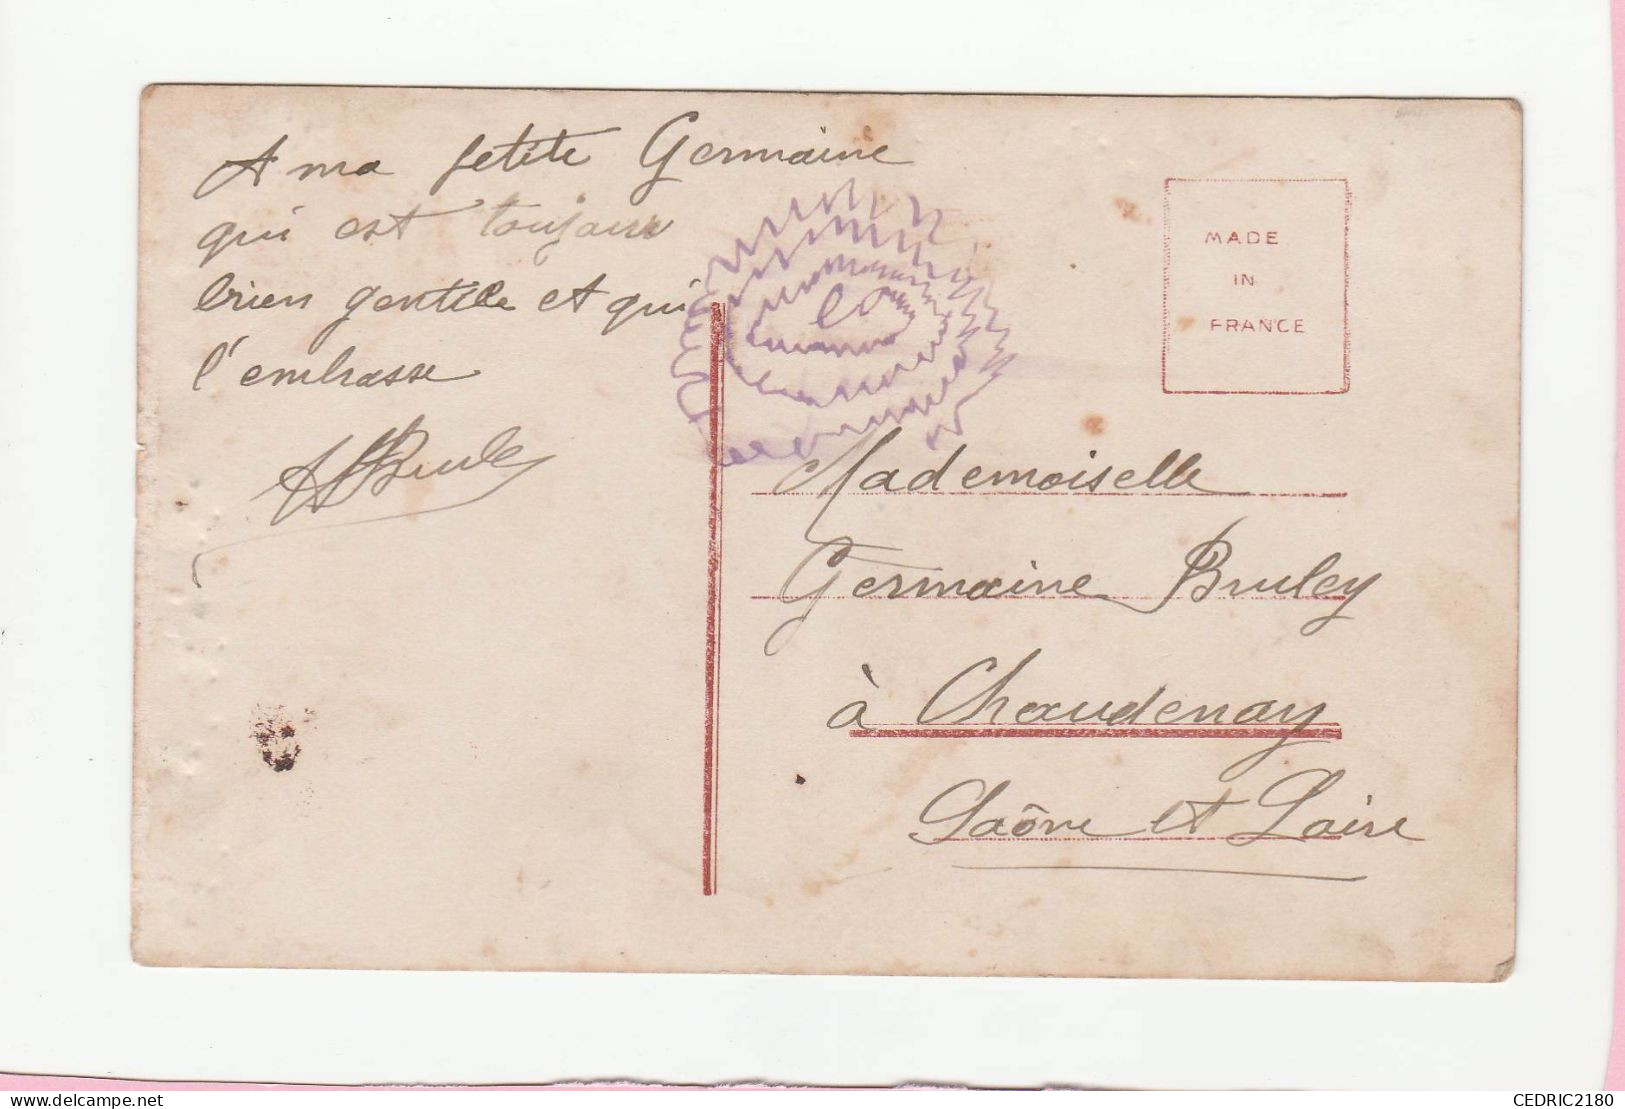 A ma petite Germaine
qui est toujours
bien gentille et qui
l'embrasse
MADE
IN
FRANCE
Mademoiselle
Germaine Bruley
à Chaudenay
Saône et Loire
CEDRIC2180